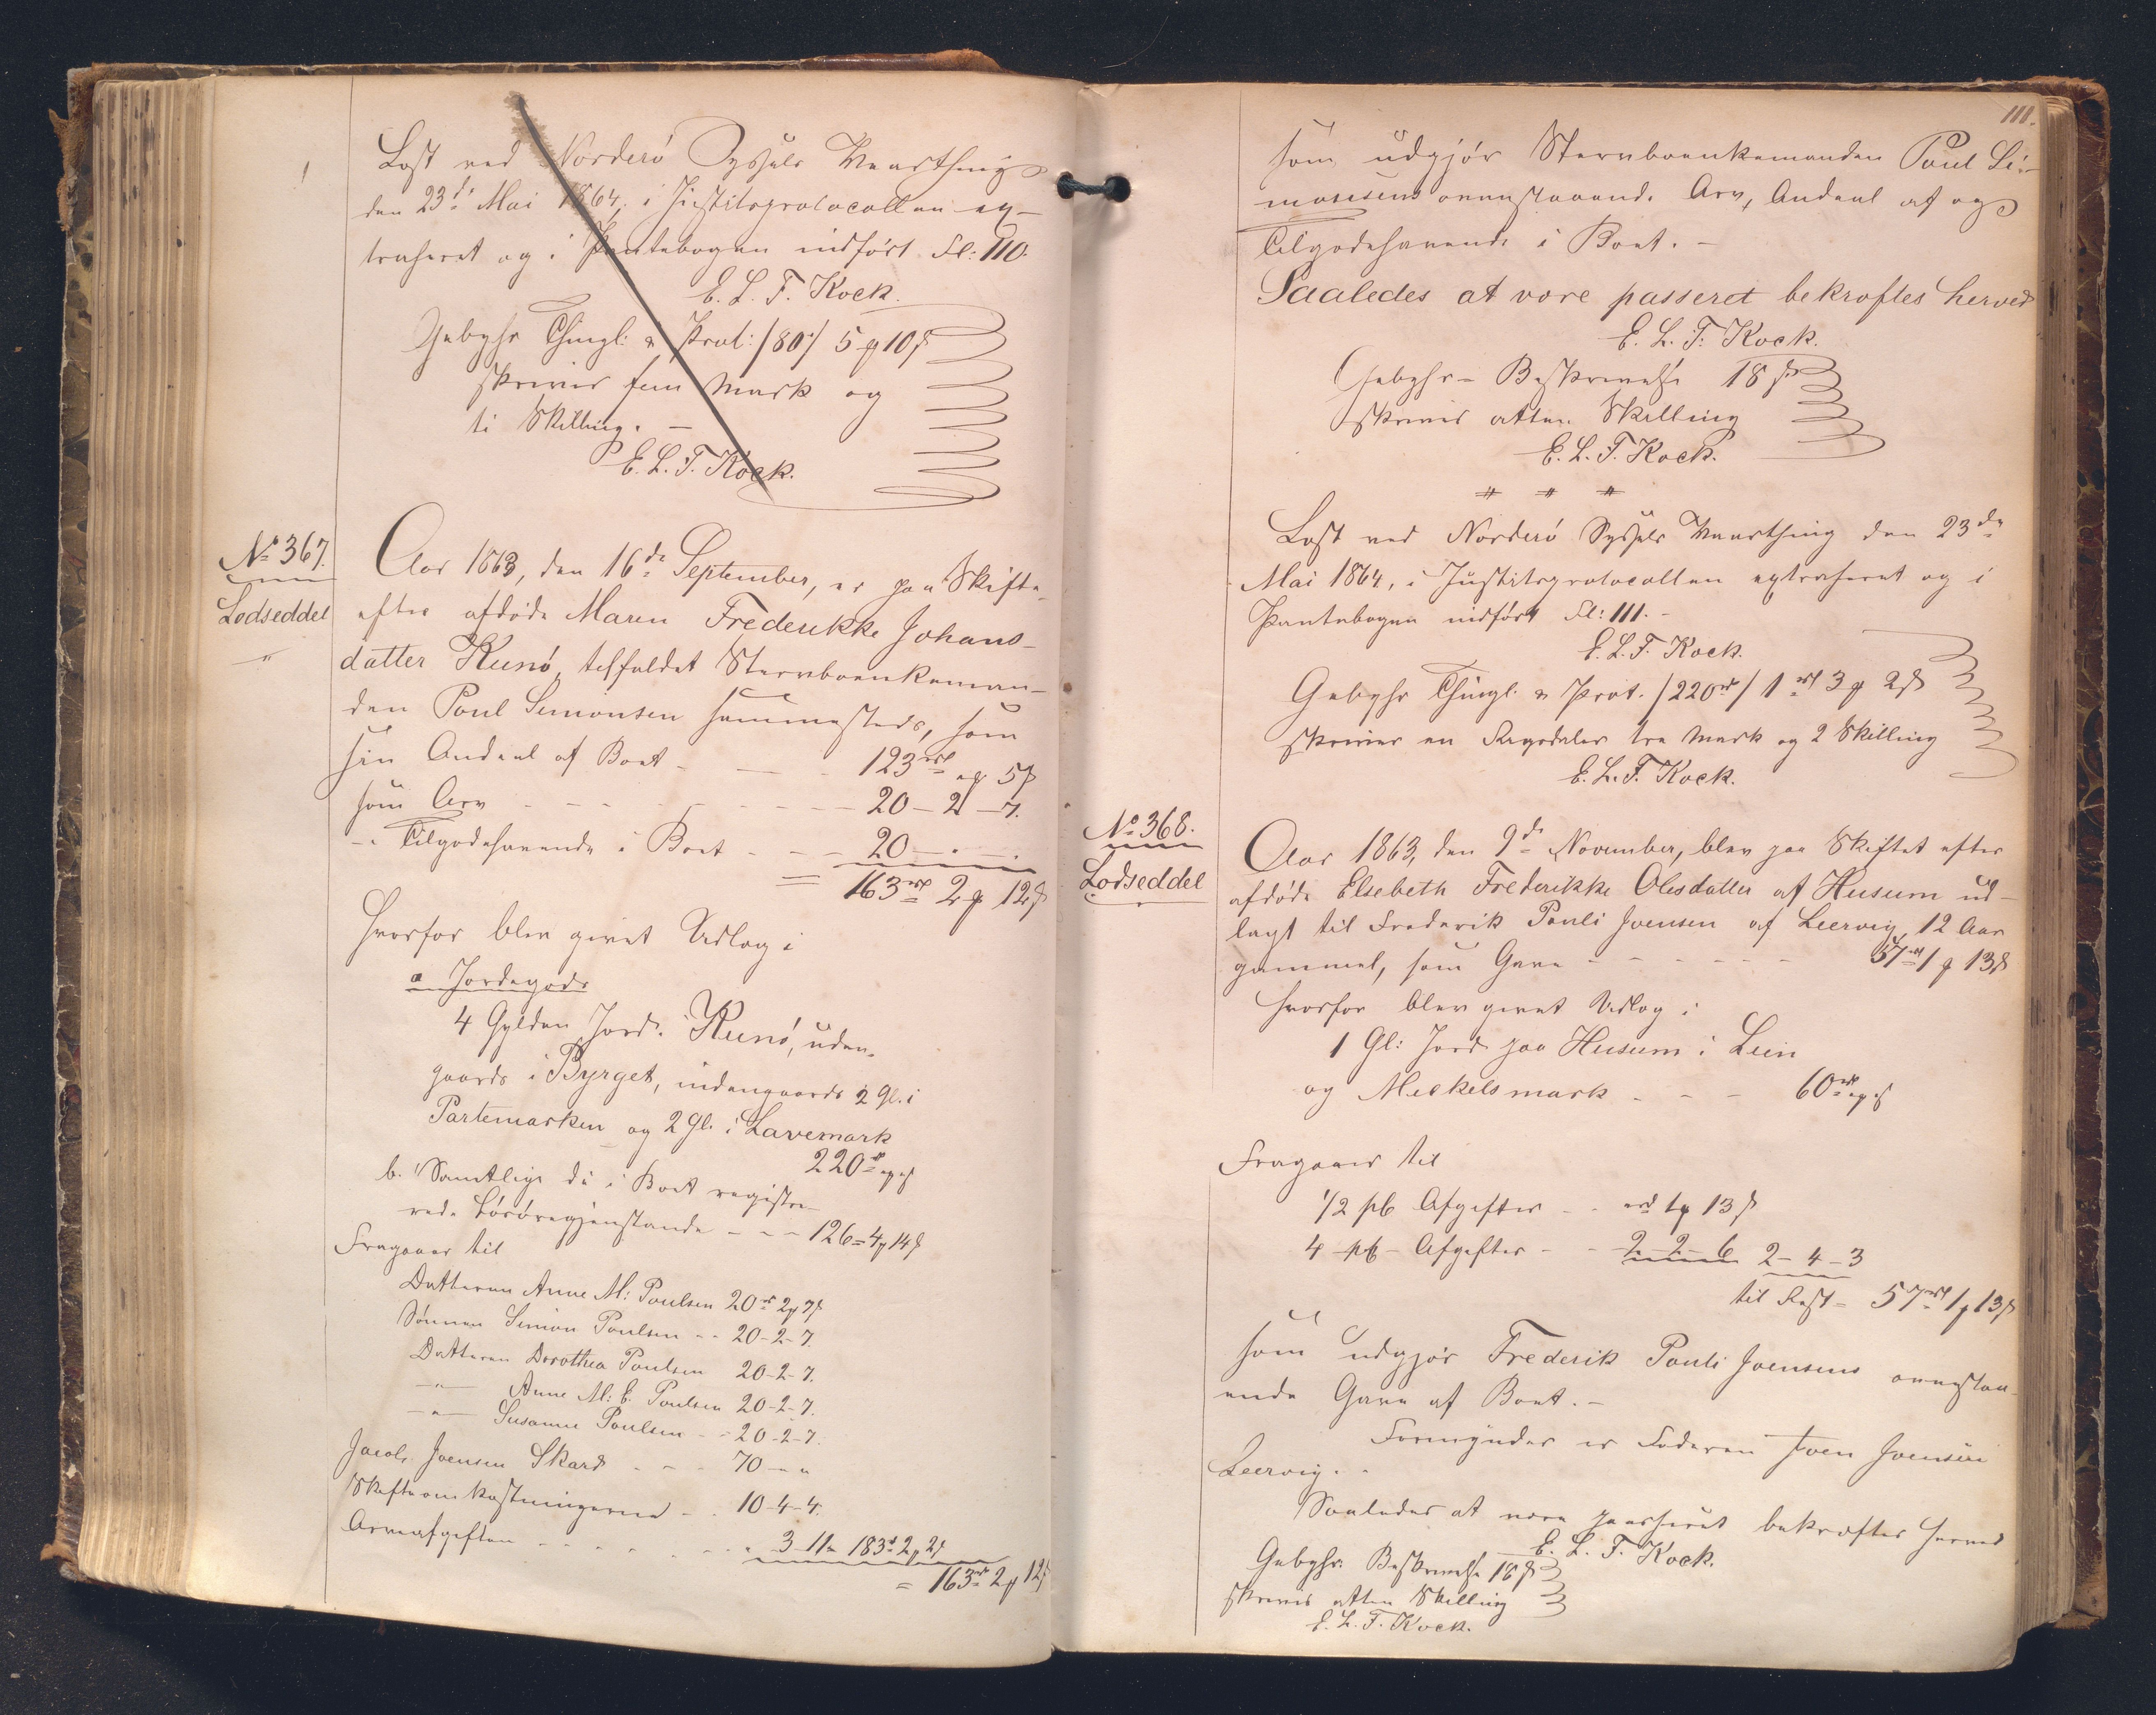 Læst ved Norderø Syssels Vaarthing
den 23de Mai 1864, i Justitsprotocollen ex-
traheret og i Pantebogen indført Fol: 110.
E. L. F. Kock.
Gebyhr Thingl: & Prot: /80rd/ 5 ₰ 10 ß
skriver fem Mark og
ti Skilling. —
E. L. F. Kock.
No 367.
Lodseddel
Aar 1863, den 16de September, er paa Skifte
efter afdøde Maren Frederikke Johans-
datter Kunø, tilfaldet Stervboenkeman-
den Poul Simonsen sammesteds, som
sin Andeel af Boet - — - 123rd " ₰ 5 ß
som Arv - - - - - - - 20 - 2 - 7.
-" Tilgodehavende i Boet - - - 20 - " - "
= 163rd 2 ₰ 12 ß
hvorfor blev givet Udlæg i
a Jordegods
4 Gylden Jord i Kunø, uden-
gaards i Byrget, indengaards 2 Gl. i
Partemarken og 2 Gl. i Lavemark
220rd " ₰ " ß
b. Samtlige de i Boet registre-
rede Løsøregjenstande - - - 126 = 4 ₰ 14 ß
Fragaaer til
Datteren Anne M: Poulsen 20rd 2 ₰ 7 ß
Sønnen Simon Poulsen - - 20 - 2 - 7.
Datteren Dorothea Poulsen 20 - 2 - 7.
—"— Anne M: E. Poulsen 20 - 2 - 7.
—"— Susanne Poulsen - - 20 - 2 - 7.
Jacob Joensen Skard - - - 70 - " "
Skifteomkostningerne - . 10 - 4 - 4.
Arveafgiften - - - - - - - " 3 11 = 183rd 2 ₰ 2 ß
= 163rd 2 ₰ 12 ß
111.
som udgjør Stervboenkemanden Poul Si-
monsens ovenstaaende Arv, Andeel af og
Tilgodehavende i Boet. -
Saaledes at være passeret bekræftes herved
E. L. F. Kock.
Gebyhr - Beskrivelse 18 ß
skriver atten Skilling
E. L. F. Kock.
Læst ved Norderø Syssels Vaarthing den 23de
Mai 1864, i Justitsprotocollen extraheret og i
Pantebogen indført Fol: 111. -
E. L. F. Kock.
Gebyhr Thingl. & Prot. /220rd/ 1rd 3 ₰ 2 ß
skriver en Rigsdaler tre Mark og 2 Skilling
E. L. F. Kock.
No 368.
Lodseddel
Aar 1863, den 9de November, blev paa Skiftet efter
afdøde Elsebeth Frederikke Olesdatter af Husum ud-
lagt til Frederik Pauli Joensen af Leervig, 12 Aar
gammel, som Gave - - - - - - 57rd 1 ₰ 13 ß
hvorfor blev givet Udlæg i
1 Gl: Jord paa Husum i Lein
og Meckelsmark - - - 60rd " ₰ " ß
Fragaaer til
1/2 pCt Afgifter - - "rd 1 ₰ 13 ß
4 - pCt - Afgifter - - 2 - 2 - 6 2 - 4 - 3
til Rest = 57rd 1 ₰ 13 ß
som udgjør Frederik Pauli Joensens ovenstaa-
ende Gave af Boet. -
Formynder er Faderen Joen Joensen
Leervig. -
Saaledes at være passeret bekræftes herved
E. L. F. Kock.
Gebyhr: Beskrivelse 18 ß
skriver atten Skilling
E. L. F. Kock.